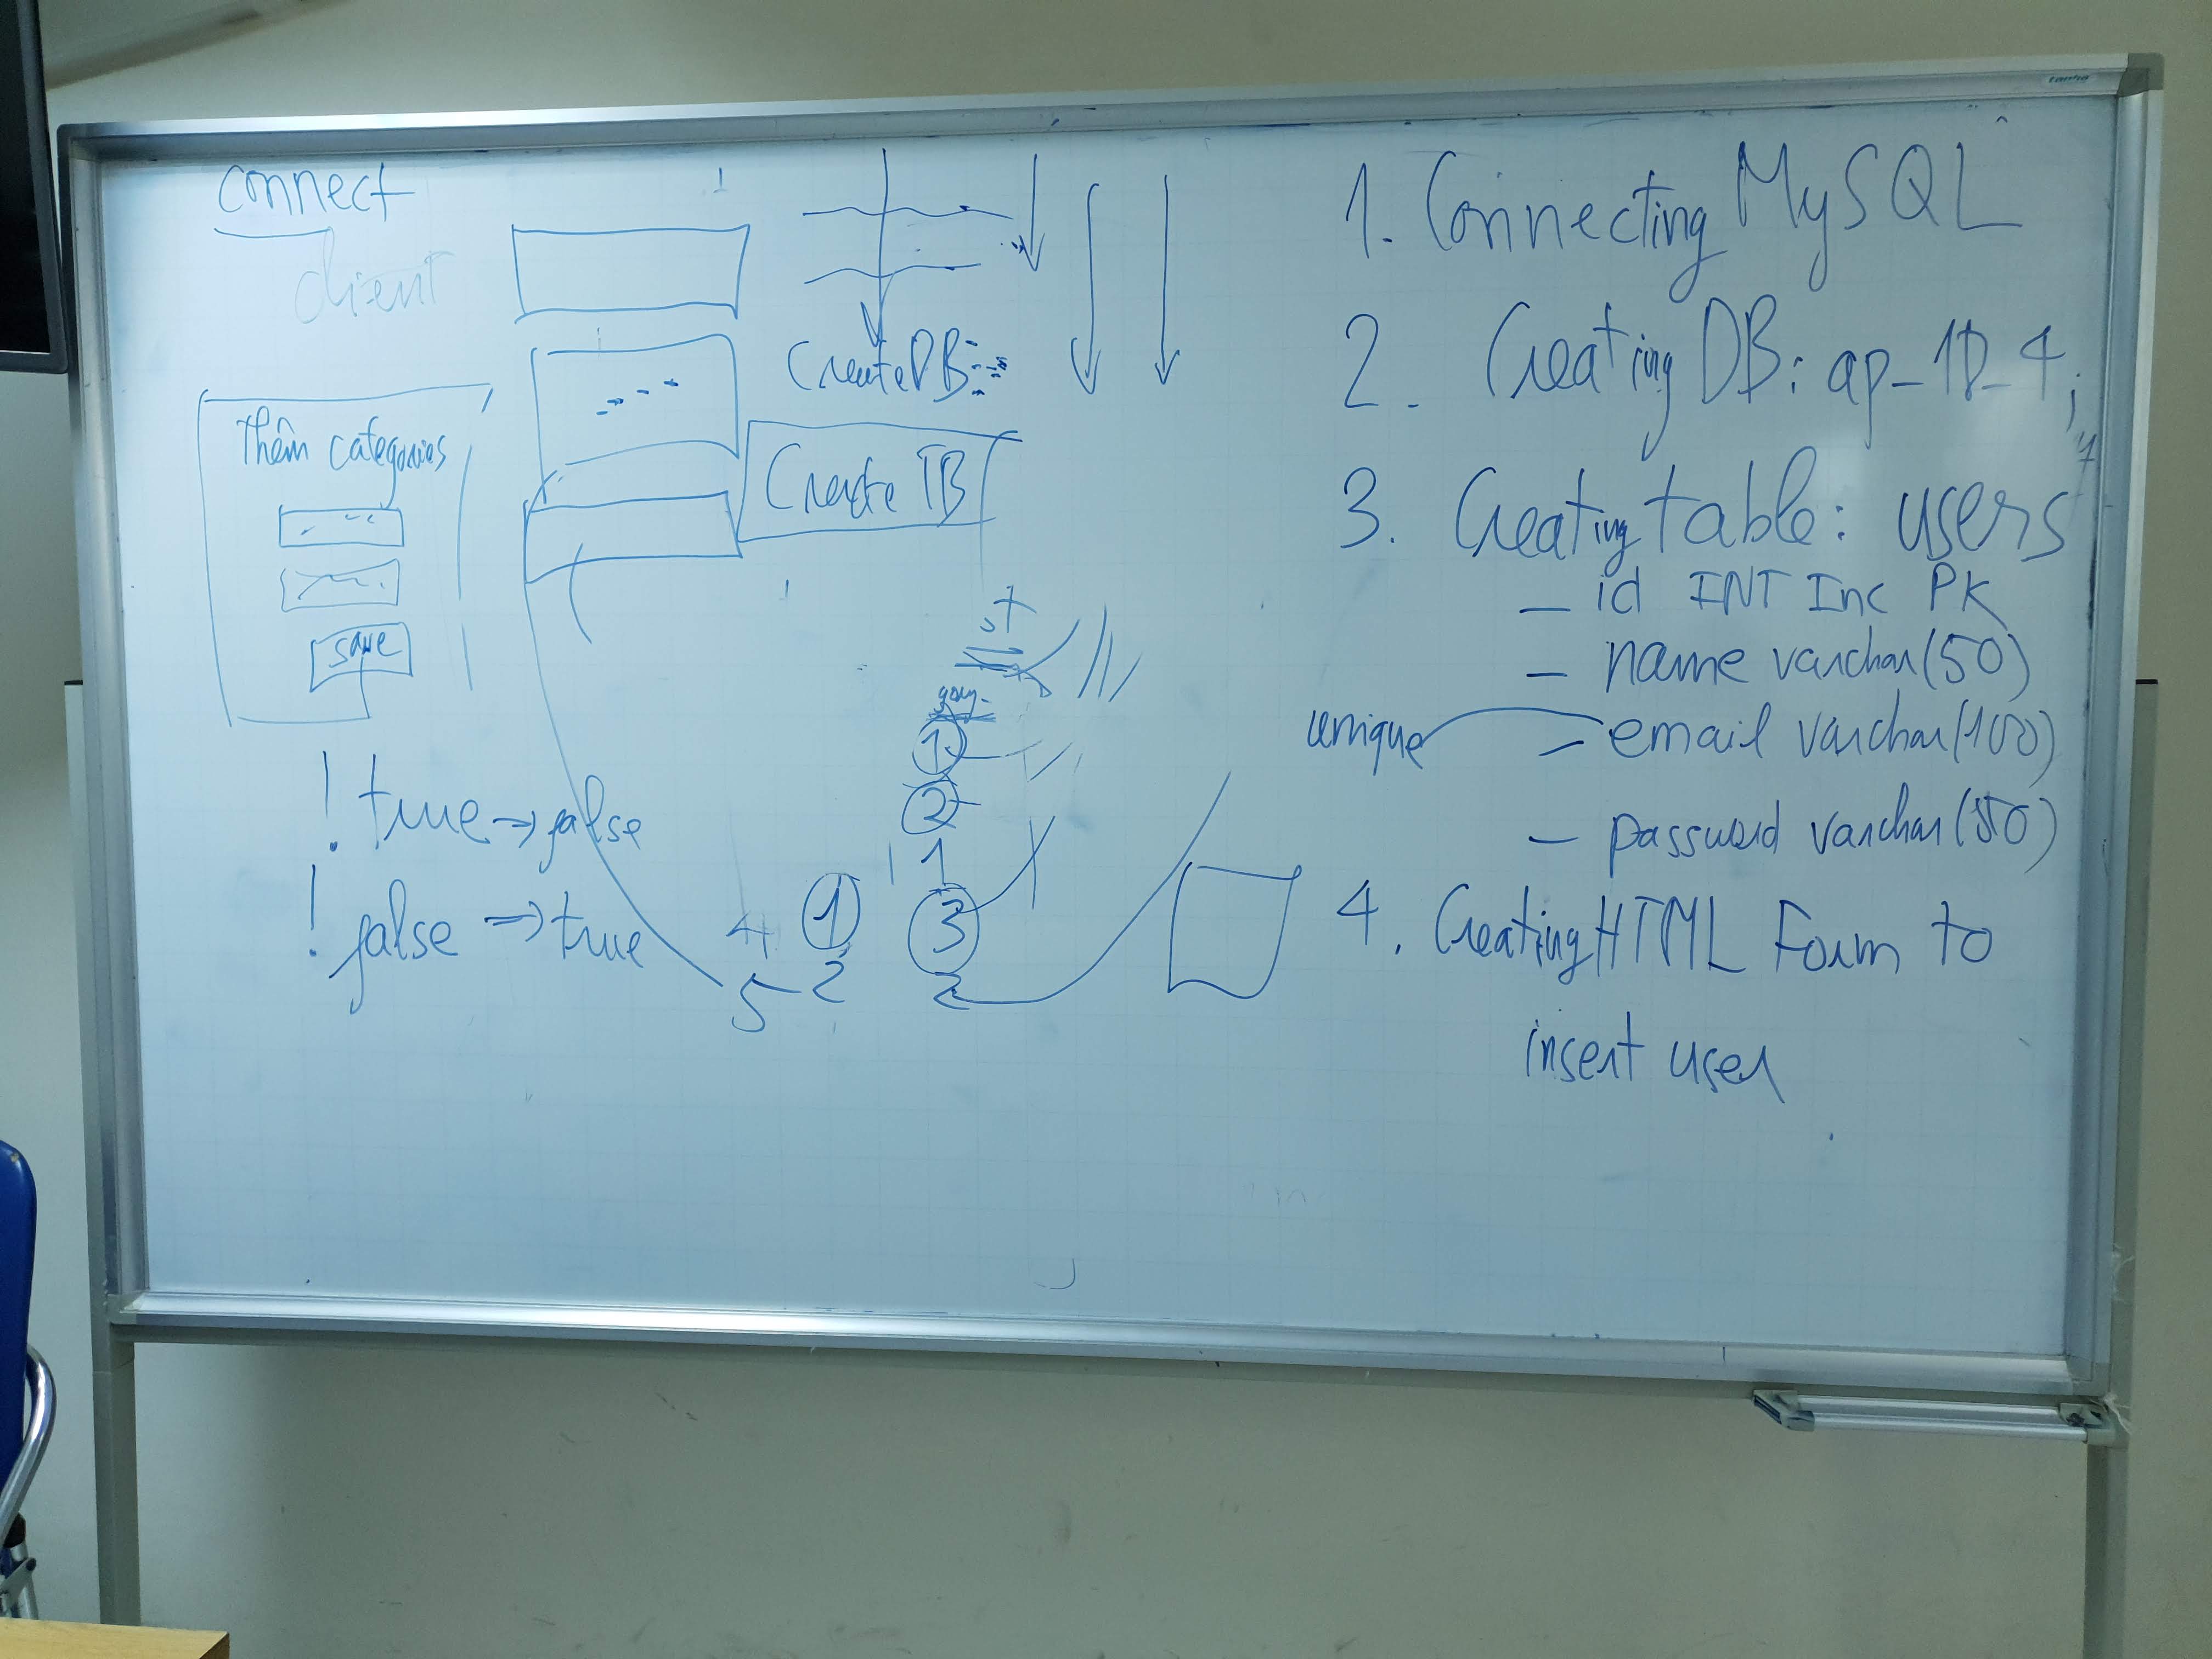 connect
client
Thêm categories
save
! true => false
! false => true
Create DB
Create TB
1
2
1
3
2
4 1
5 2
1. Connecting MySQL
2. Creating DB: ap_1D_4;
3. Creating table: users
- id INT Inc PK
- name varchar(50)
unique - email varchar(100)
- password varchar(50)
4. Creating HTML Form to
insert user